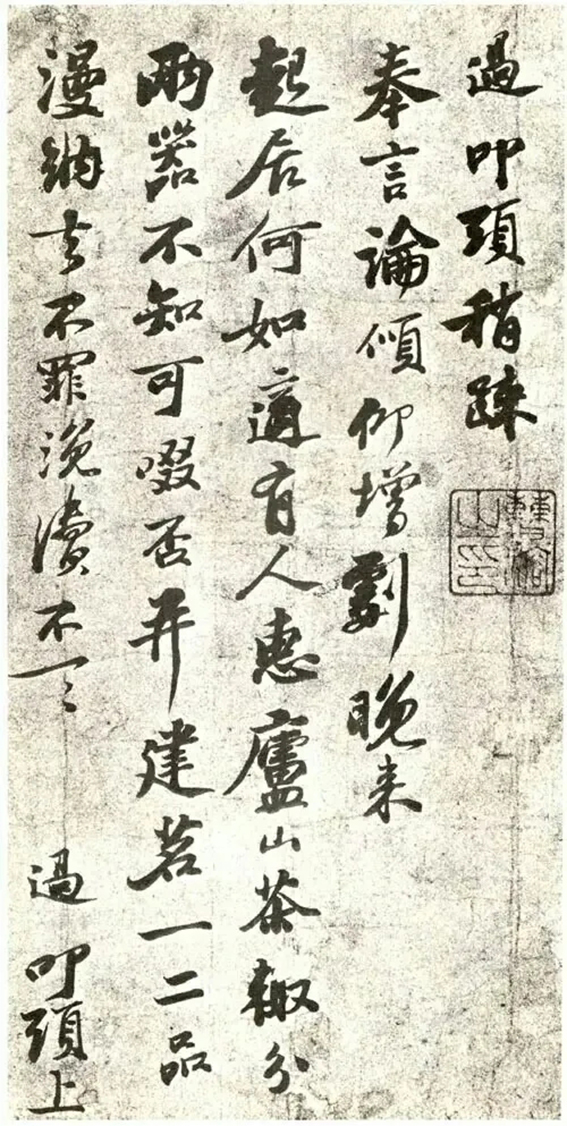 過叩頭稍踈
奉言論傾仰增劇晚来
起居何如適有人惠廬山茶輙分
兩器不知可啜否并建茗一二品
漫納去不罪浼瀆不一一 過叩頭上